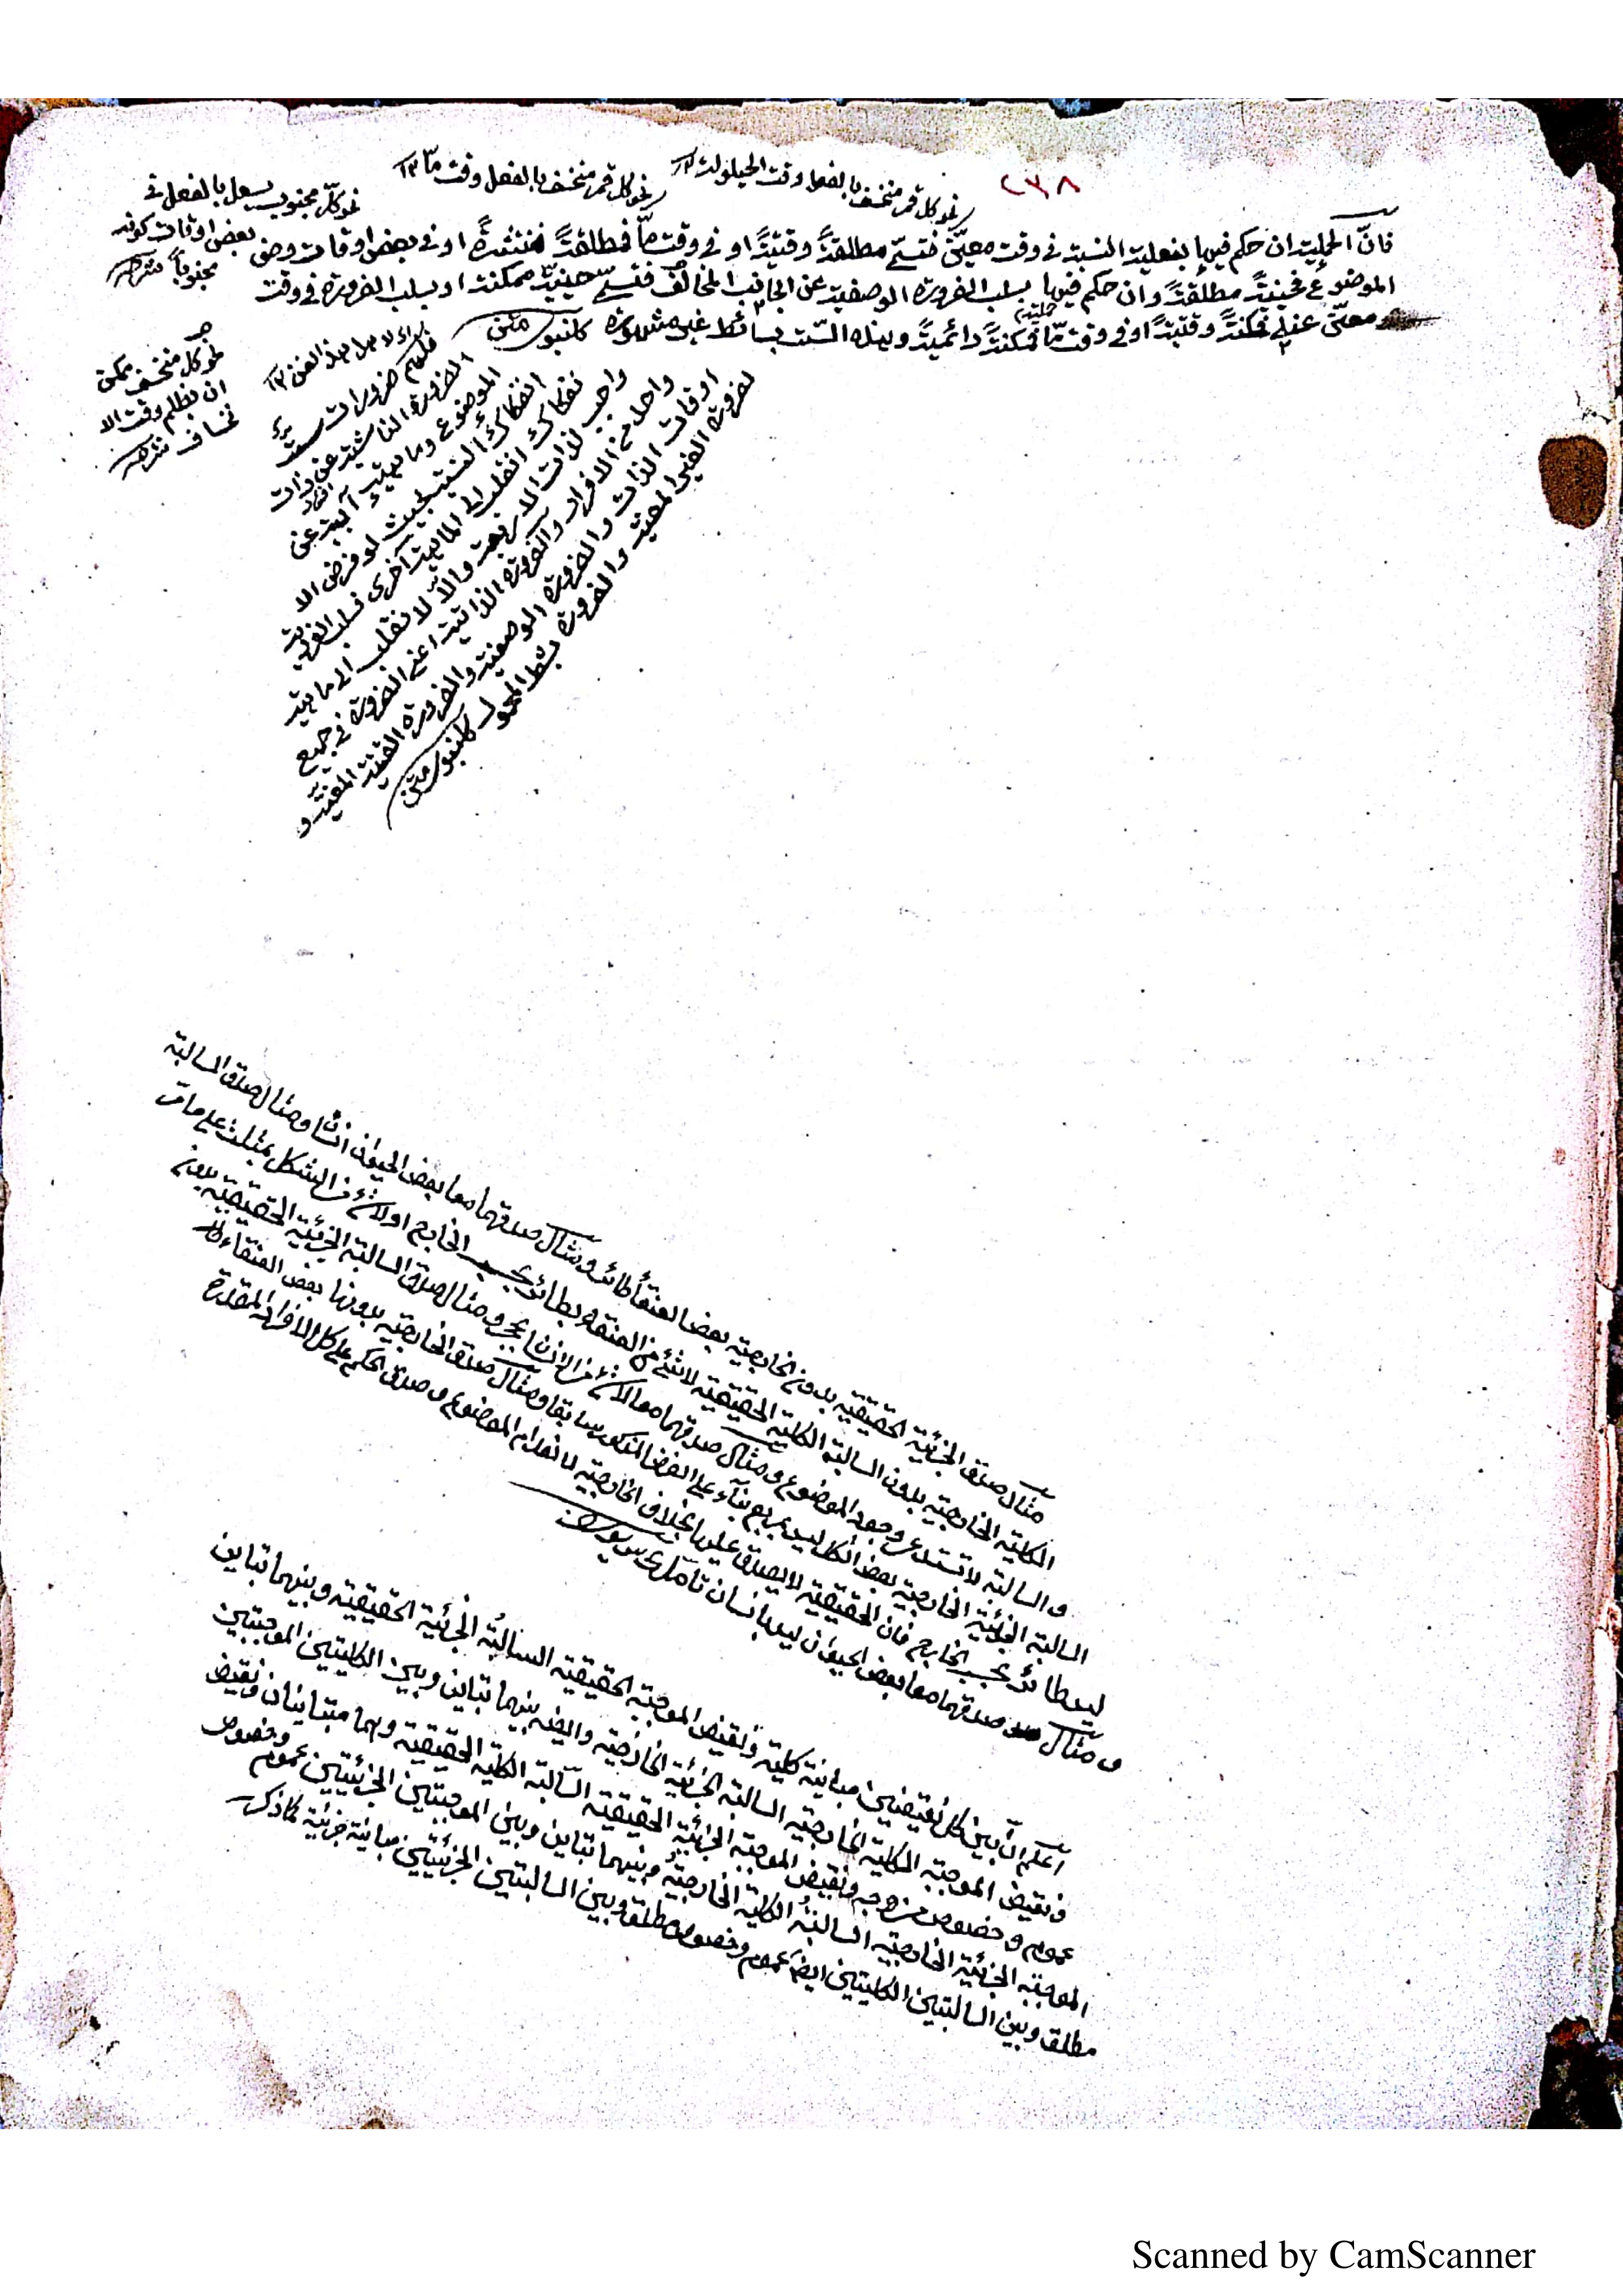 ٢٣٨
نحو كل قمر منخسف بالفعل وقت الحيلولة ١٢
نحو كل قمر منخسف بالفعل وقت ما ١٢
نحو كل مجنوب يسعل بالفعل في
بعض اوقات كونه
مجنوباً شرح
فانّ الحملية ان حكم فيها بفعلية النسبة في وقت معيّن فتسمّى مطلقةً وقتيّةً او في وقت مّا فمطلقةً منتشرةً او في بعض اوقات وصف
الموضوع فحينيّةً مطلقةً وان حكم فيها بسلب الضرورة الوصفية عن الجانب المخالف فتسمى حينيّة ممكنة او بسلب الضرورة في وقت
معيّن عنه فممكنةً وقتيةً او في وقت مّا فممكنةً دائميةً وهذه السّت بسائط غير مشهورة كلنبوى متن
نحو كل منخسف يمكن
ان يظلم وقت الا
نخساف شرح
فلهم ضرورات ست
الضرورة الناشية عن ذات
الموضوع وماهيته
انفكاك النسبة بحيث لو فرض الا
نفكاك انقلب الى الماهية اخرى
واجب لذات الاربعة والّا لانقلب الى ماهية
واحد من الافراد والضرورة الذاتية اعني الضرورة في جميع
اوقات الذات والضرورة الوصفية والضرورة الوقتية المعينة و
لضرورة الغير المعينة والضرورة بشرط المحمول كلنبوى متن
مثال صدق الجزئية الحقيقية بدون الخارجية بعض العنقاء طائر ومثال صدقهما معا بعض الحيوان انسان ومثال صدق السالبة
الكلية الخارجية بدون السالبة الكلية الحقيقية لا شئ من العنقاء بطائر بحسب الخارج او لا شئ من الشكل بمثلث على ما مر
والسالبة لا تستدعى وجود الموضوع ومثال صدقهما معا لا شئ من الانسان بحجر ومثال صدق السالبة الجزئية الحقيقية بدون
السالبة الجزئية الخارجية بعض الشكل ليس بمربع بناء على الفرض المذكور سابقا ومثال صدق الخارجية بدونها بعض العنقاء
ليس طائر بحسب الخارج فان الحقيقية لا يصدق عليها بخلاف الخارجية لانعدام الموضوع وصدق الحكم على كل الافراد المقدرة
ومثال صدقهما معا بعض الحيوان ليس بانسان تأمل
اعلم ان بين كل نقيضين مباينة كلية ونقيض الموجبة الحقيقية السالبة الجزئية الحقيقية وبينهما تباين
ونقيض الموجبة الكلية الخارجية السالبة الجزئية الخارجية وايضا بينهما تباين وبين الكليتين الموجبتين
عموم وخصوص من وجه ونقيض الموجبة الجزئية الحقيقية السّالبة الكلية الحقيقية وهما متباينان ونقيض
الموجبة الجزئية الخارجية السالبة الكلية الخارجية وبينهما تباين وبين الموجبتين الجزئيتين عموم وخصوص
مطلق وبين السالبتين الكليتين ايضا عموم وخصوص مطلق وبين السالبتين الجزئيتين مباينة جزئية كما ذكر
Scanned by CamScanner